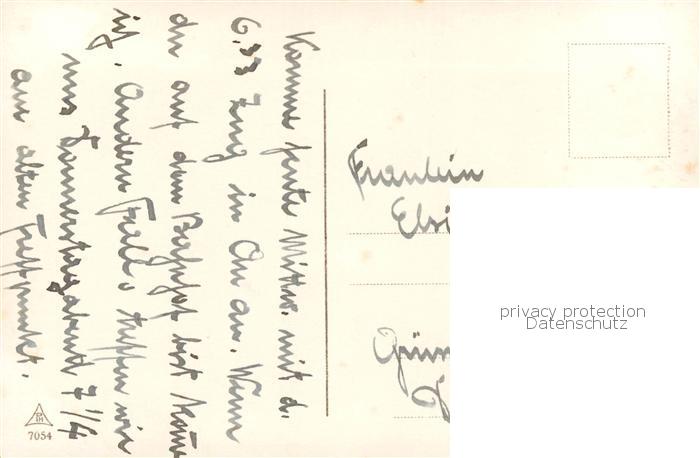 Komme heute Mittw. mit d.
6.33 Zug in On an. Wenn
du auf dem Bahnhof bist
ist. Andern Falls treffen wir
uns Donnerstagabend 7 1/4
am alten Treffpunkt.
Fräulein
Elsi
Grün
privacy protection
Datenschutz
7054